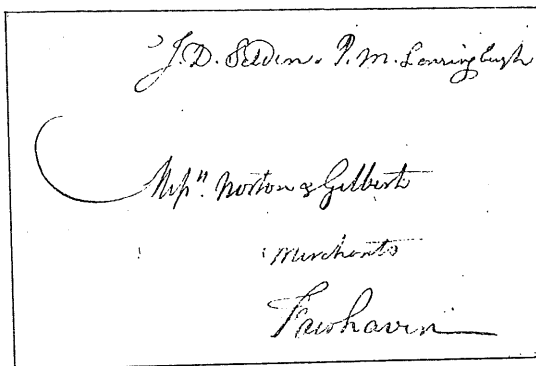 J. D. Selden. P. M. Lansingburgh
Messrs. Norton & Gilbert
Merchants
Fairhaven